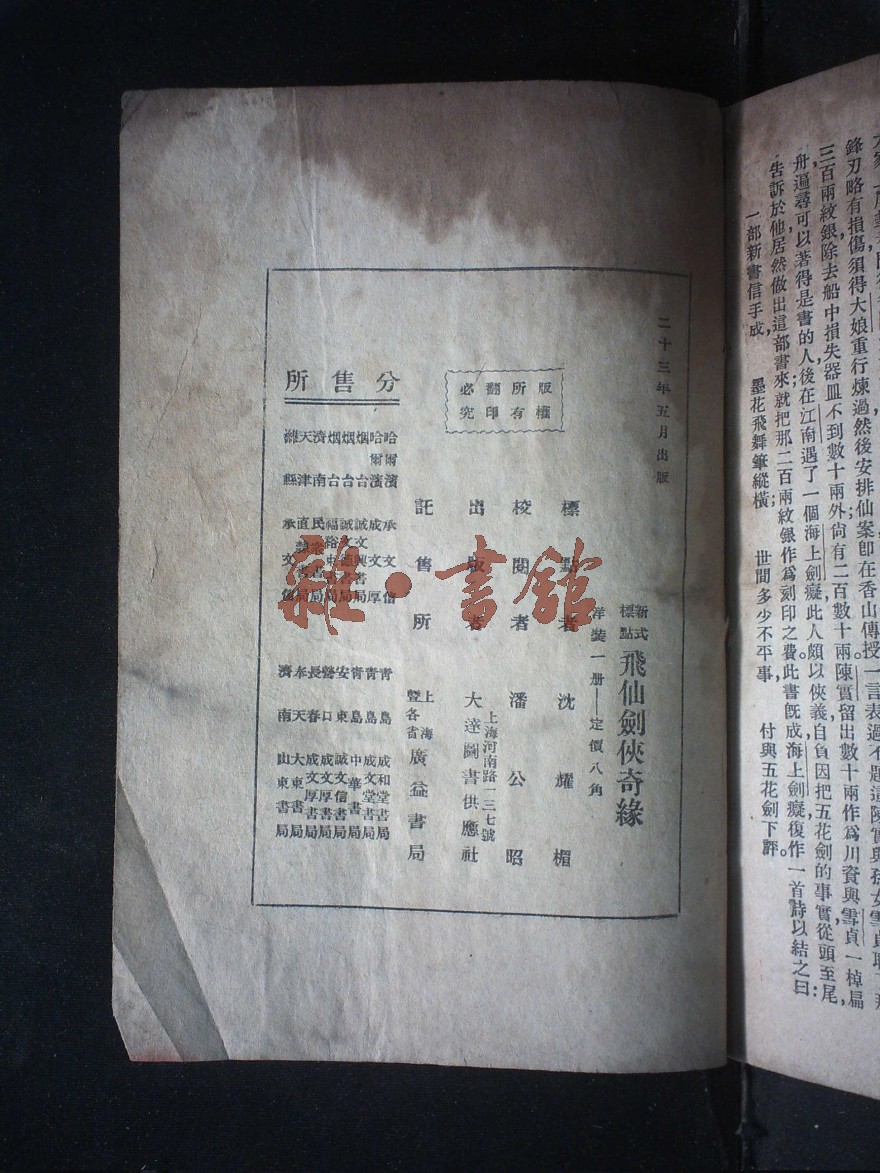 鋒刃略有損傷須得大娘重行煉過然後安排仙案卽在香山傳授一言表過不題這陳實與孫女雪貞聽了那
三百兩紋銀除去船中損失器皿不到數十兩外尙有二百數十兩陳實留出數十兩作爲川資與雪貞一棹扁
舟遍尋可以著得是書的人後在江南遇了一個海上劍癡此人頗以俠義自負因把五花劍的事實從頭至尾，
告訴於他居然做出這部書來；就把那二百兩紋銀作爲刻印之費此書旣成，海上劍癡復作一首詩以結之曰：
一部新書信手成，　墨花飛舞筆縱橫；　世間多少不平事　付與五花劍下評。
二十三年五月出版
新式標點 飛仙劍俠奇緣
洋裝一册——定價八角
版權所有 翻印必究
標點者 沈耀楣
校閱者 潘公昭
出版者 上海河南路一三七號 大達圖書供應社
託售所 上海暨各省 廣益書局
分售所
哈爾濱 承文信
哈爾濱 成文厚
烟台 誠文興
烟台 誠文德書局
烟台 福裕東書局
濟南
天津 直隸書局
濰縣 承文信
青島 成和堂書局
青島 成文堂書局
青島 中華書局
安東 誠文信書局
營口 成文厚書局
長春 成文厚書局
奉天 大東書局
濟南 山東書局
雜·書館